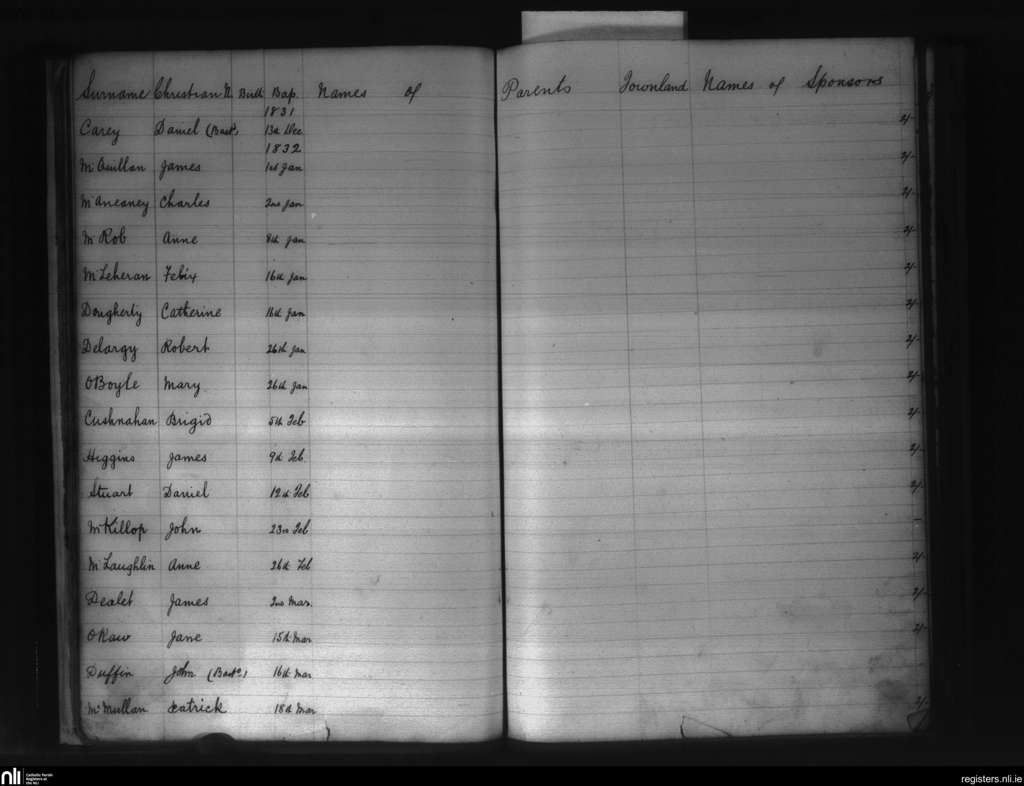 Surname Christian N. Birth Bap. Names of Parents Townland Names of Sponsors
1831
Carey Daniel (Bast.) 13th Dec 2/-
1832
McQuillan James 1st Jan 2/-
McAneaney Charles 2nd Jan 2/-
McRob Anne 8th Jan 2/-
Felix 16th Jan 2/-
Dougherty Catherine 16th Jan 2/-
Delargy Robert 26th Jan 2/-
OBoyle Mary 26th Jan 2/-
Cushnahan Brigid 5th Feb 2/-
Higgins James 9th Feb 2/-
Stuart Daniel 12th Feb 2/-
McKillop John 23rd Feb -
McLaughlin Anne 26th Feb 2/-
Dealet James 2nd Mar. 2/-
OKaw Jane 15th Mar 2/-
Duffin John (Bast.) 16th Mar
McMullan Patrick 18th Mar 2/-
nli Catholic Parish
Registers at
the NLI
registers.nli.ie